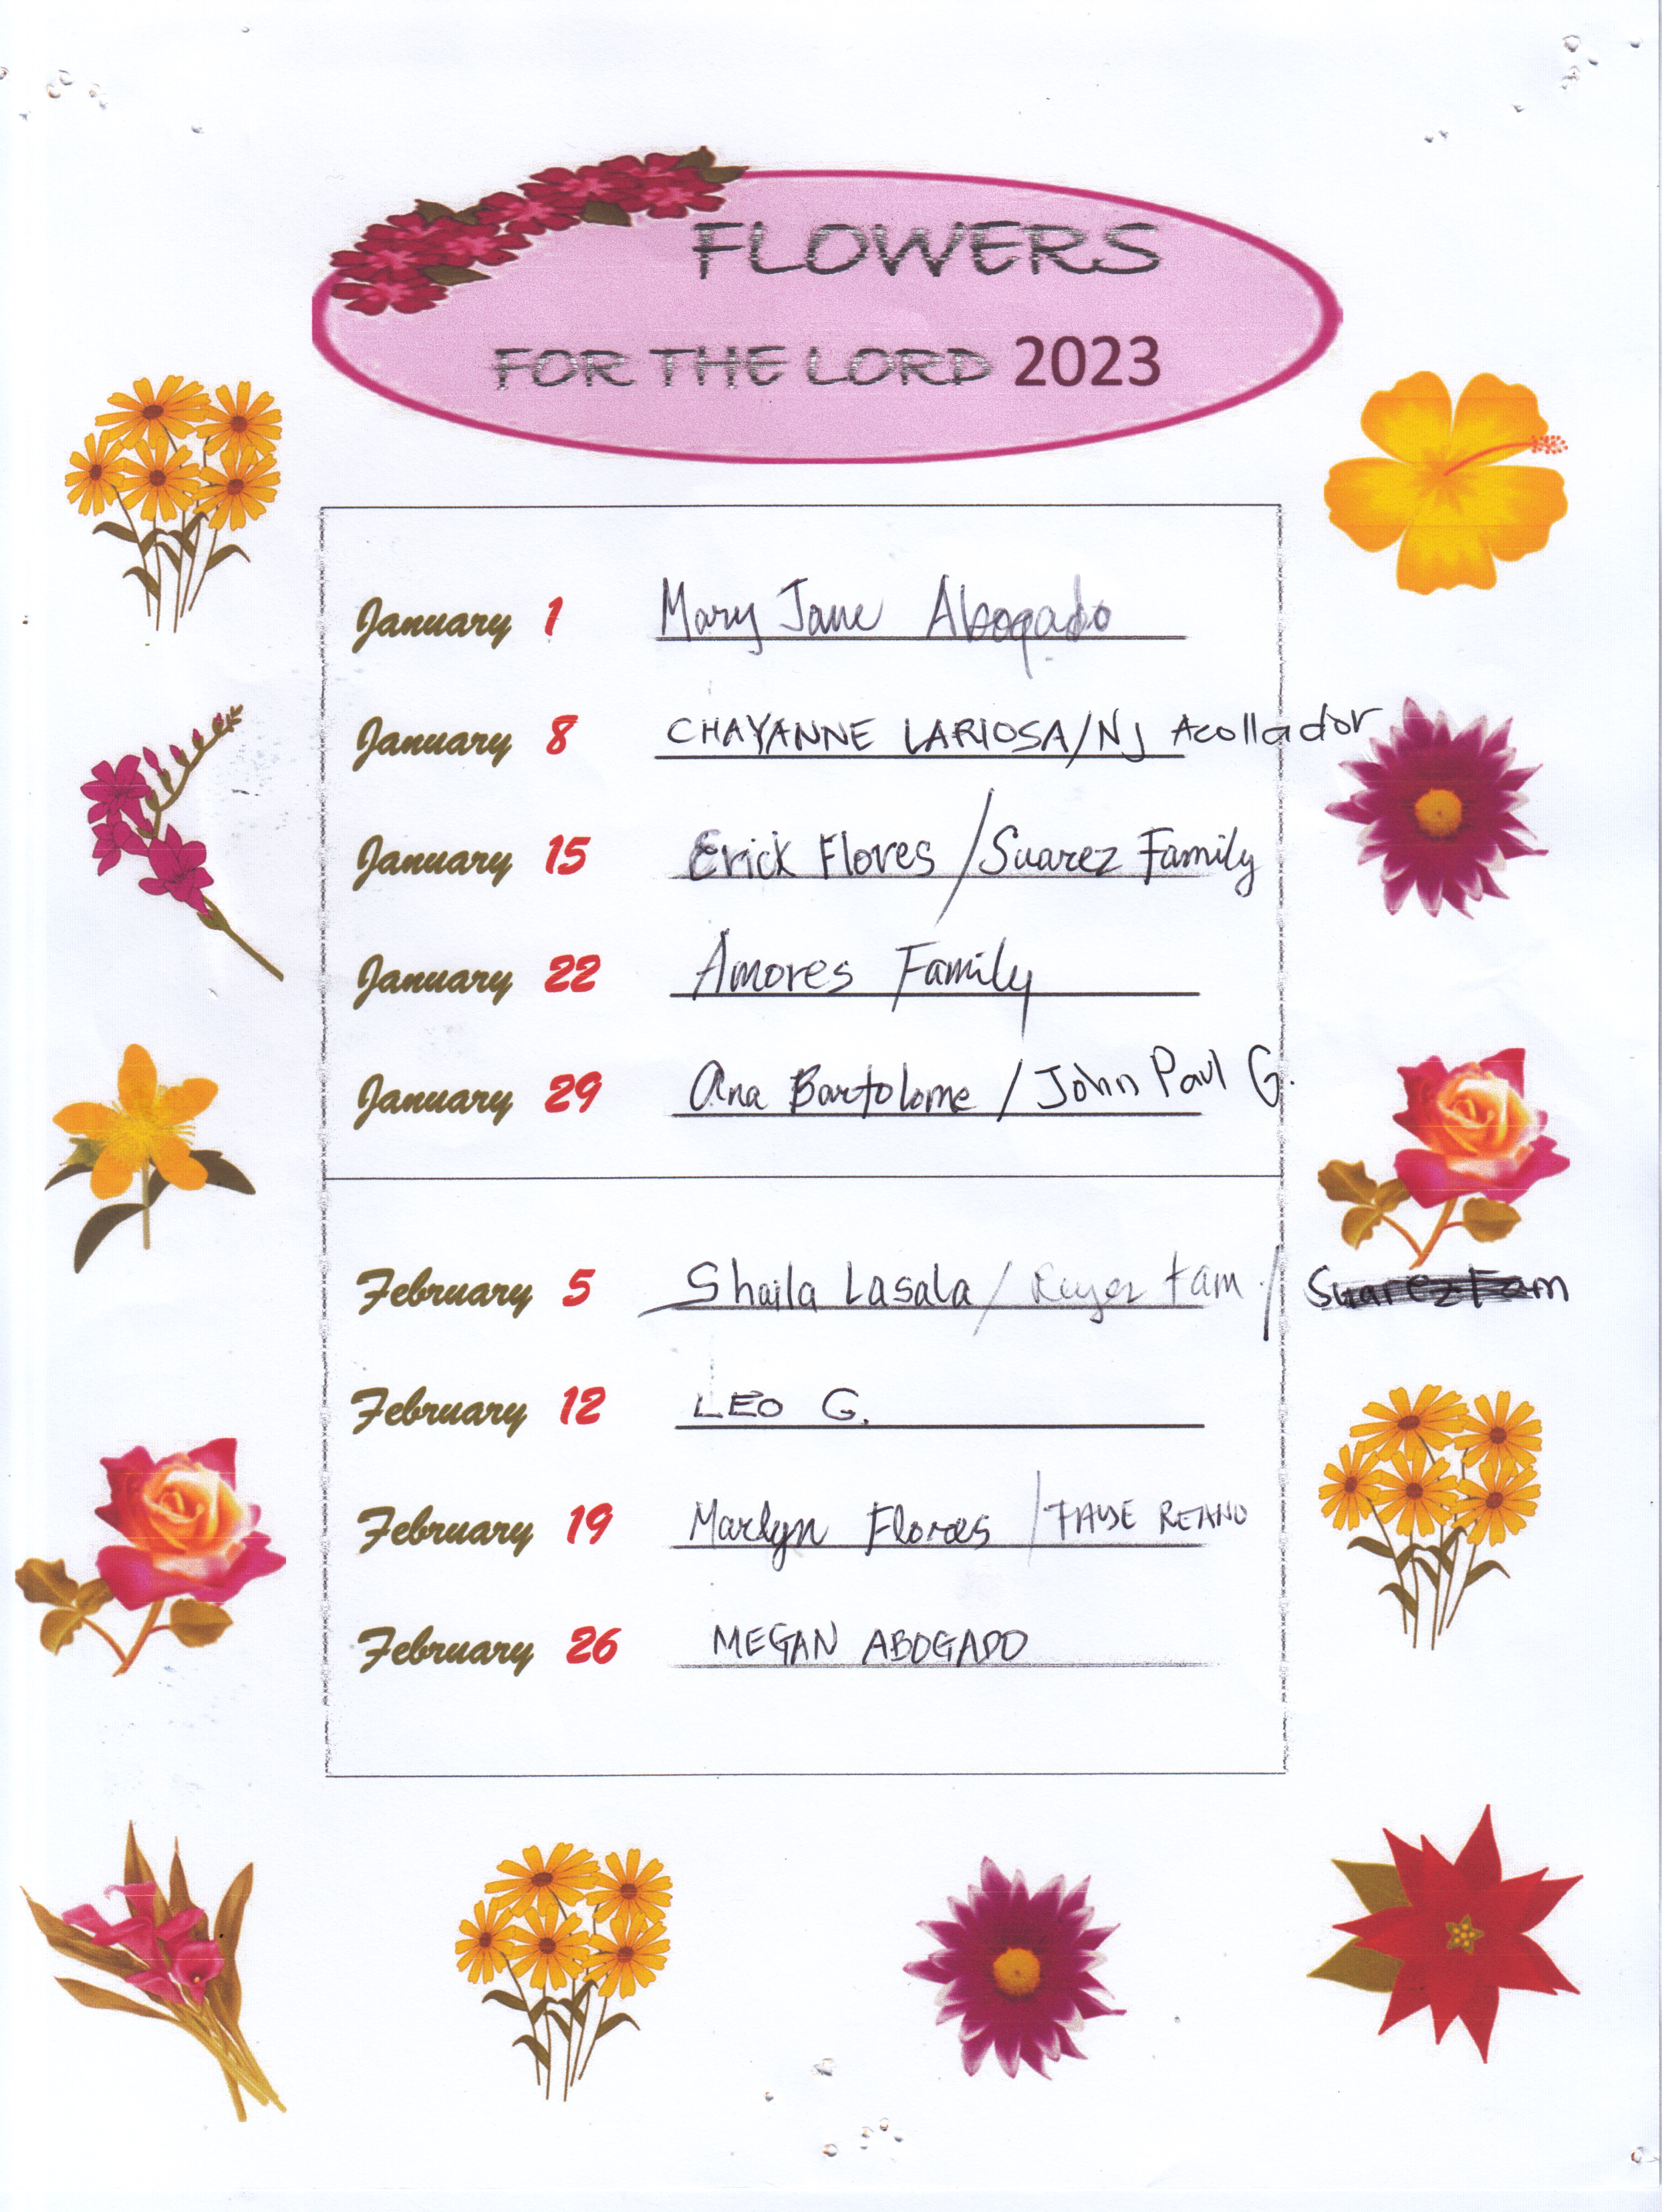 FLOWERS
FOR THE LORD 2023
January 1 Mary Jane Abogado
January 8 CHAYANNE LARIOSA/NJ Acollador
January 15 Erick Flores / Suarez Family
January 22 Amores Family
January 29 Ana Bartolome / John Paul G.
February 5 Shaila Lasala / Fam / Suarez Fam
February 12 LEO G.
February 19 Marlyn Flores / FAYE REANO
February 26 MEGAN ABOGADO